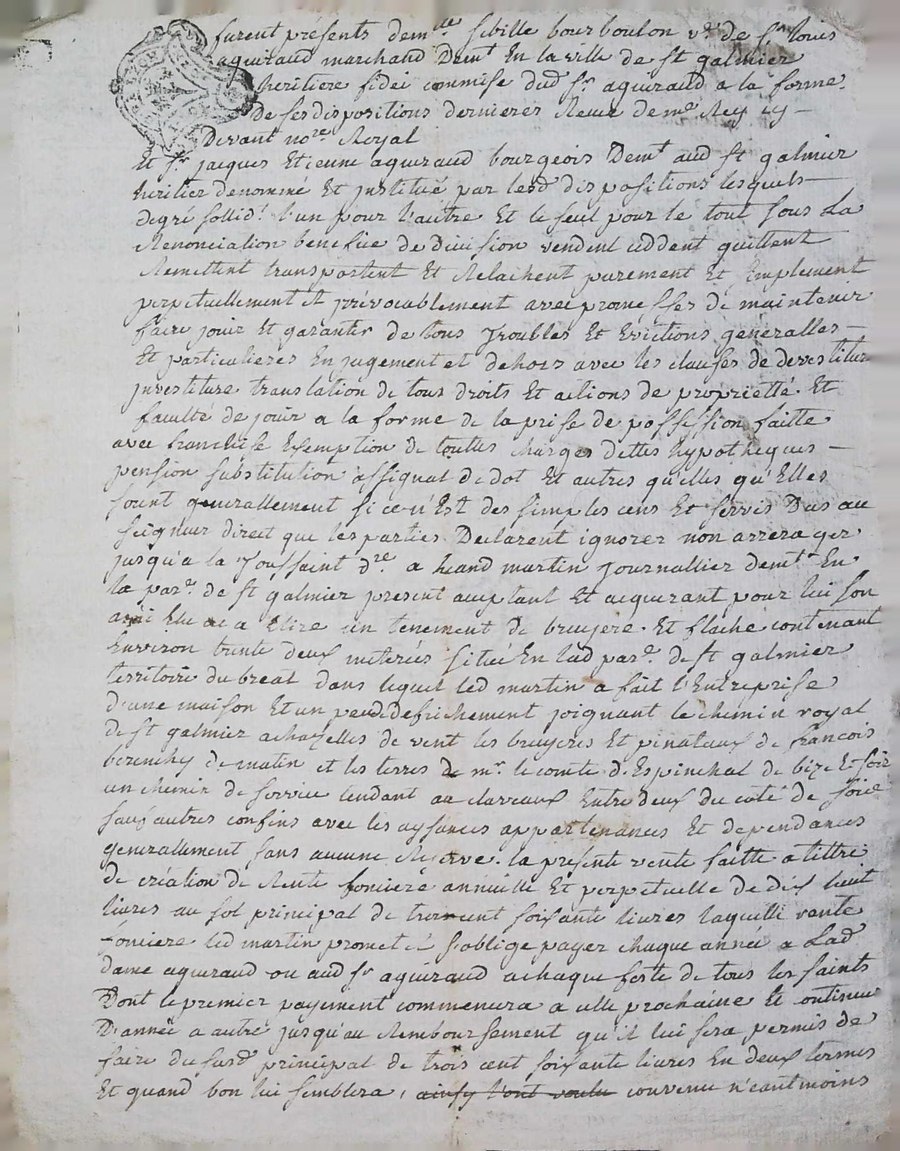 furent présents dem.lle sibille bourboulon v.e de s.r louis
aguiraud marchand Dem.t En la ville de st galmier
heritiere fidei commise dud s.r aguiraud a la forme
De ses dispositions dernieres Receu de m.e Rey cy
Devant no.re Royal
Et s.r jacques Etienne aguiraud bourgeois Dem.t aud st galmier
heritier denommé Et jnstitué par lesd dispositions lesquels
degré sollid.t l'un pour l'autre Et le seul pour le tout sous La
Renonciation benefice de division vendent cèddent quittent
Remettent transportent Et Relachent purement Et simplement
perpetuellement Et jrrévocablement avec promesses de maintenir
faire jouir Et garantir de tous troubles Et Evictions generalles
Et particulieres En jugement et dehors avec les clauses de devestiture
jnvestiture translation de tous droits Et actions de proprietté Et
faculté de jouir a la forme de la prise de possession faitte
avec franchise Exemption de touttes charges dettes hypotheques
pension substitution assignat de dot Et autres qu'elles qu'Elles
soient generallement si ce n'Est des simples cens Et servis Dus au
seigneur direct que les parties Declarent ignorer non arrerages
jusqu'a la Toussaint d.re a leand martin journallier dem.t En
la par.e de st galmier present acceptant Et acquerant pour lui son
ami Elu ou a Elire un tenement de bruyere Et flache contenant
Environ trente deux meterées situé En lad par.e de st galmier
territoire du breat dans lequel led martin a fait l'Entreprise
d'une maison Et un peu de defrichement joignant le chemin royal
de st galmier a chazelles de vent les bruyeres Et pinateaux de francois
berenchy de matin et les terres de m.r le comte d'Espinchal de bize Et soir
un chemin de service tendant au claveaux Entre deux du coté de soir
sauf autres confins avec les aysances appartenances Et dependances
generallement sans aucune Reserve. la presente vente faitte a tittre
de création de Rente fonciere annuelle Et perpetuelle de dix huit
livres au sol principal de trois cent soixante livres laquelle rente
fonciere led martin promet et s'oblige payer chaque année a Lad
dame aguiraud ou aud s.r aguiraud a chaque feste de tous les saints
Dont le premier payement commencera a celle prochaine Et continuer
D'année a autre jusqu'au Remboursement qu'il lui sera permis de
faire du susd principal de trois cent soixante livres En deux termes
Et quand bon lui semblera, ainsy l'ont voulu convenu n'eantmoins